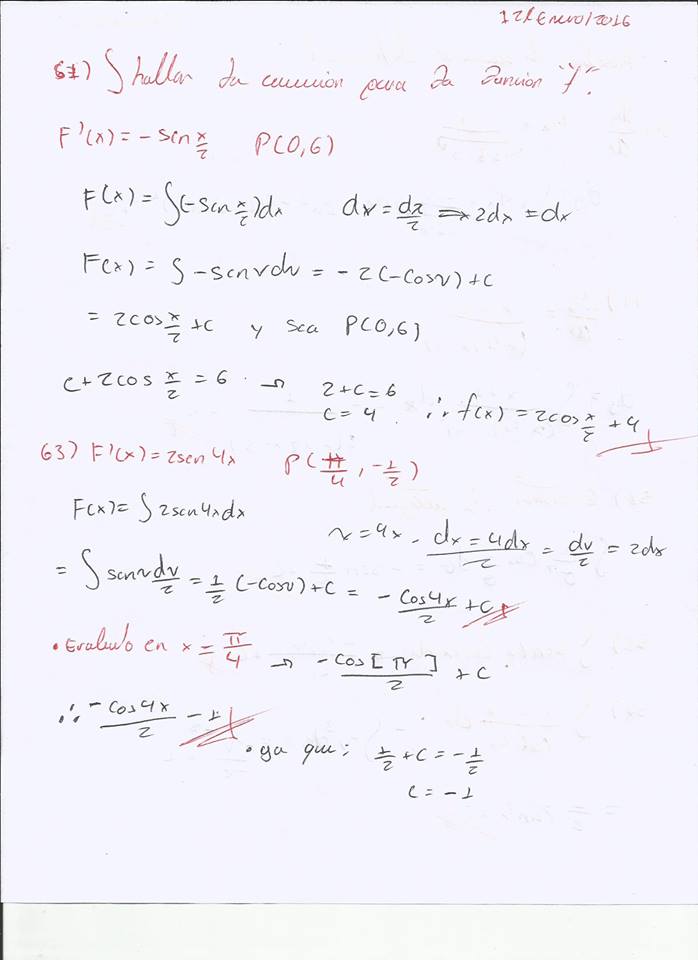 12/Enero/2016
61) Hallar la ecuación para la función "f".
F'(x) = -sen x/2 P(0,6)
F(x) = ∫(-sen x/2)dx dv = dx/2 ⇒ 2dx = dx
F(x) = ∫ -senvdv = -2(-cosv)+c
= 2cos x/2 + c y sea P(0,6)
c+2cos x/2 = 6 → 2+c=6
c=4 ∴ f(x) = 2cos x/2 + 4
63) F'(x) = 2sen4x P(π/4, -1/2)
F(x) = ∫2sen4xdx
v=4x - dx=4dx/2 = dv/2 = 2dx
= ∫ senv dv/2 = 1/2 (-cosv)+c = -cos4x/2 + c
• Evaluo en x = π/4 → -cos[π]/2 + c
∴ -cos4x/2 - 1
• ya que; 1/2 + c = -1/2
c = -1